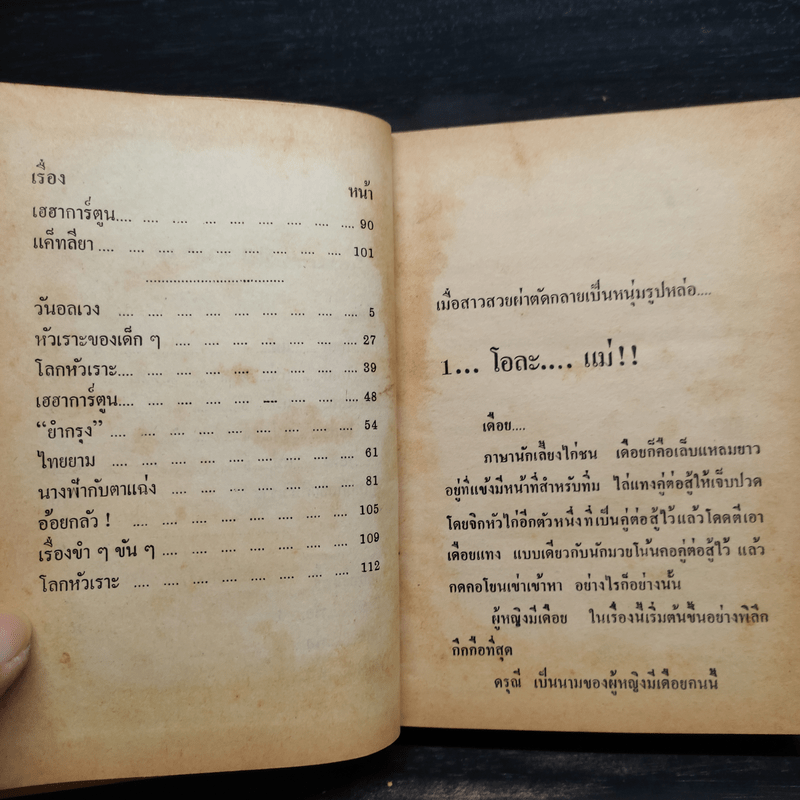 เรื่อง
หน้า
เฮฮาการ์ตูน.... .... .... .... .... .... .... .... .... 90
แค็ทลียา .... .... .... .... .... .... .... .... .... 101
...................................
วันอลเวง .... .... .... .... .... .... .... .... .... 5
หัวเราะของเด็ก ๆ .... .... .... .... .... .... .... 27
โลกหัวเราะ.... .... .... .... .... .... .... .... .... 39
เฮฮาการ์ตูน.... .... .... .... .... .... .... .... .... 48
“ยำกรุง” .... .... .... .... .... .... .... .... .... 54
ไทยยาม .... .... .... .... .... .... .... .... .... 61
นางฟ้ากับตาแฉ่ง .... .... .... .... .... .... .... 81
อ้อยกลัว ! .... .... .... .... .... .... .... .... 105
เรื่องขำ ๆ ขัน ๆ .... .... .... .... .... .... .... 109
โลกหัวเราะ .... .... .... .... .... .... .... .... 112
เมื่อสาวสวยผ่าตัดกลายเป็นหนุ่มรูปหล่อ....
1... โอละ.... แม่!!
เดือย....
ภาษานักเลี้ยงไก่ชน เดือยก็คือเล็บแหลมยาว
อยู่ที่แข้งมีหน้าที่สำหรับทิ่ม ไล่แทงคู่ต่อสู้ให้เจ็บปวด
โดยจิกหัวไก่อีกตัวหนึ่งที่เป็นคู่ต่อสู้ไว้แล้วโดดตีเอา
เดือยแทง แบบเดียวกับนักมวยโน้นคอคู่ต่อสู้ไว้ แล้ว
กดคอโยนเข่าเข้าหา อย่างไรก็อย่างนั้น
ผู้หญิงมีเดือย ในเรื่องนี้เริ่มต้นขึ้นอย่างพิลึก
กึกกือที่สุด
ดรุณี เป็นนามของผู้หญิงมีเดือยคนนี้